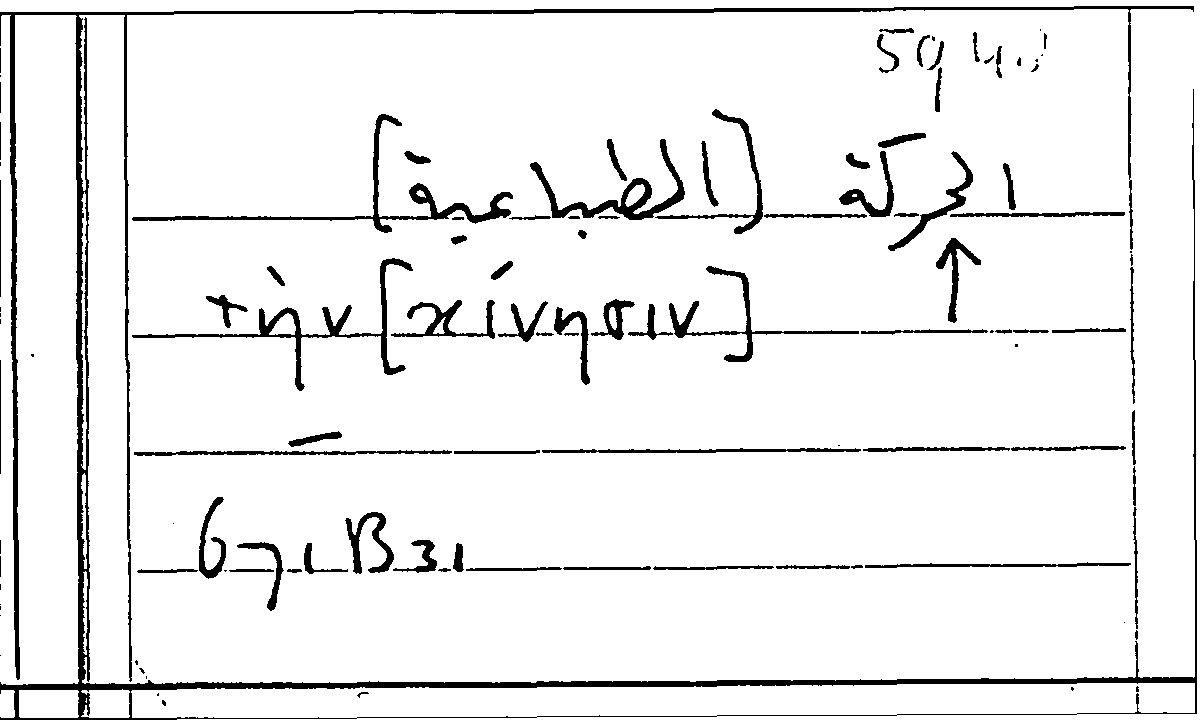 الحركة [الطباعية]
τὴν [κίνησιν]
—
671 B31